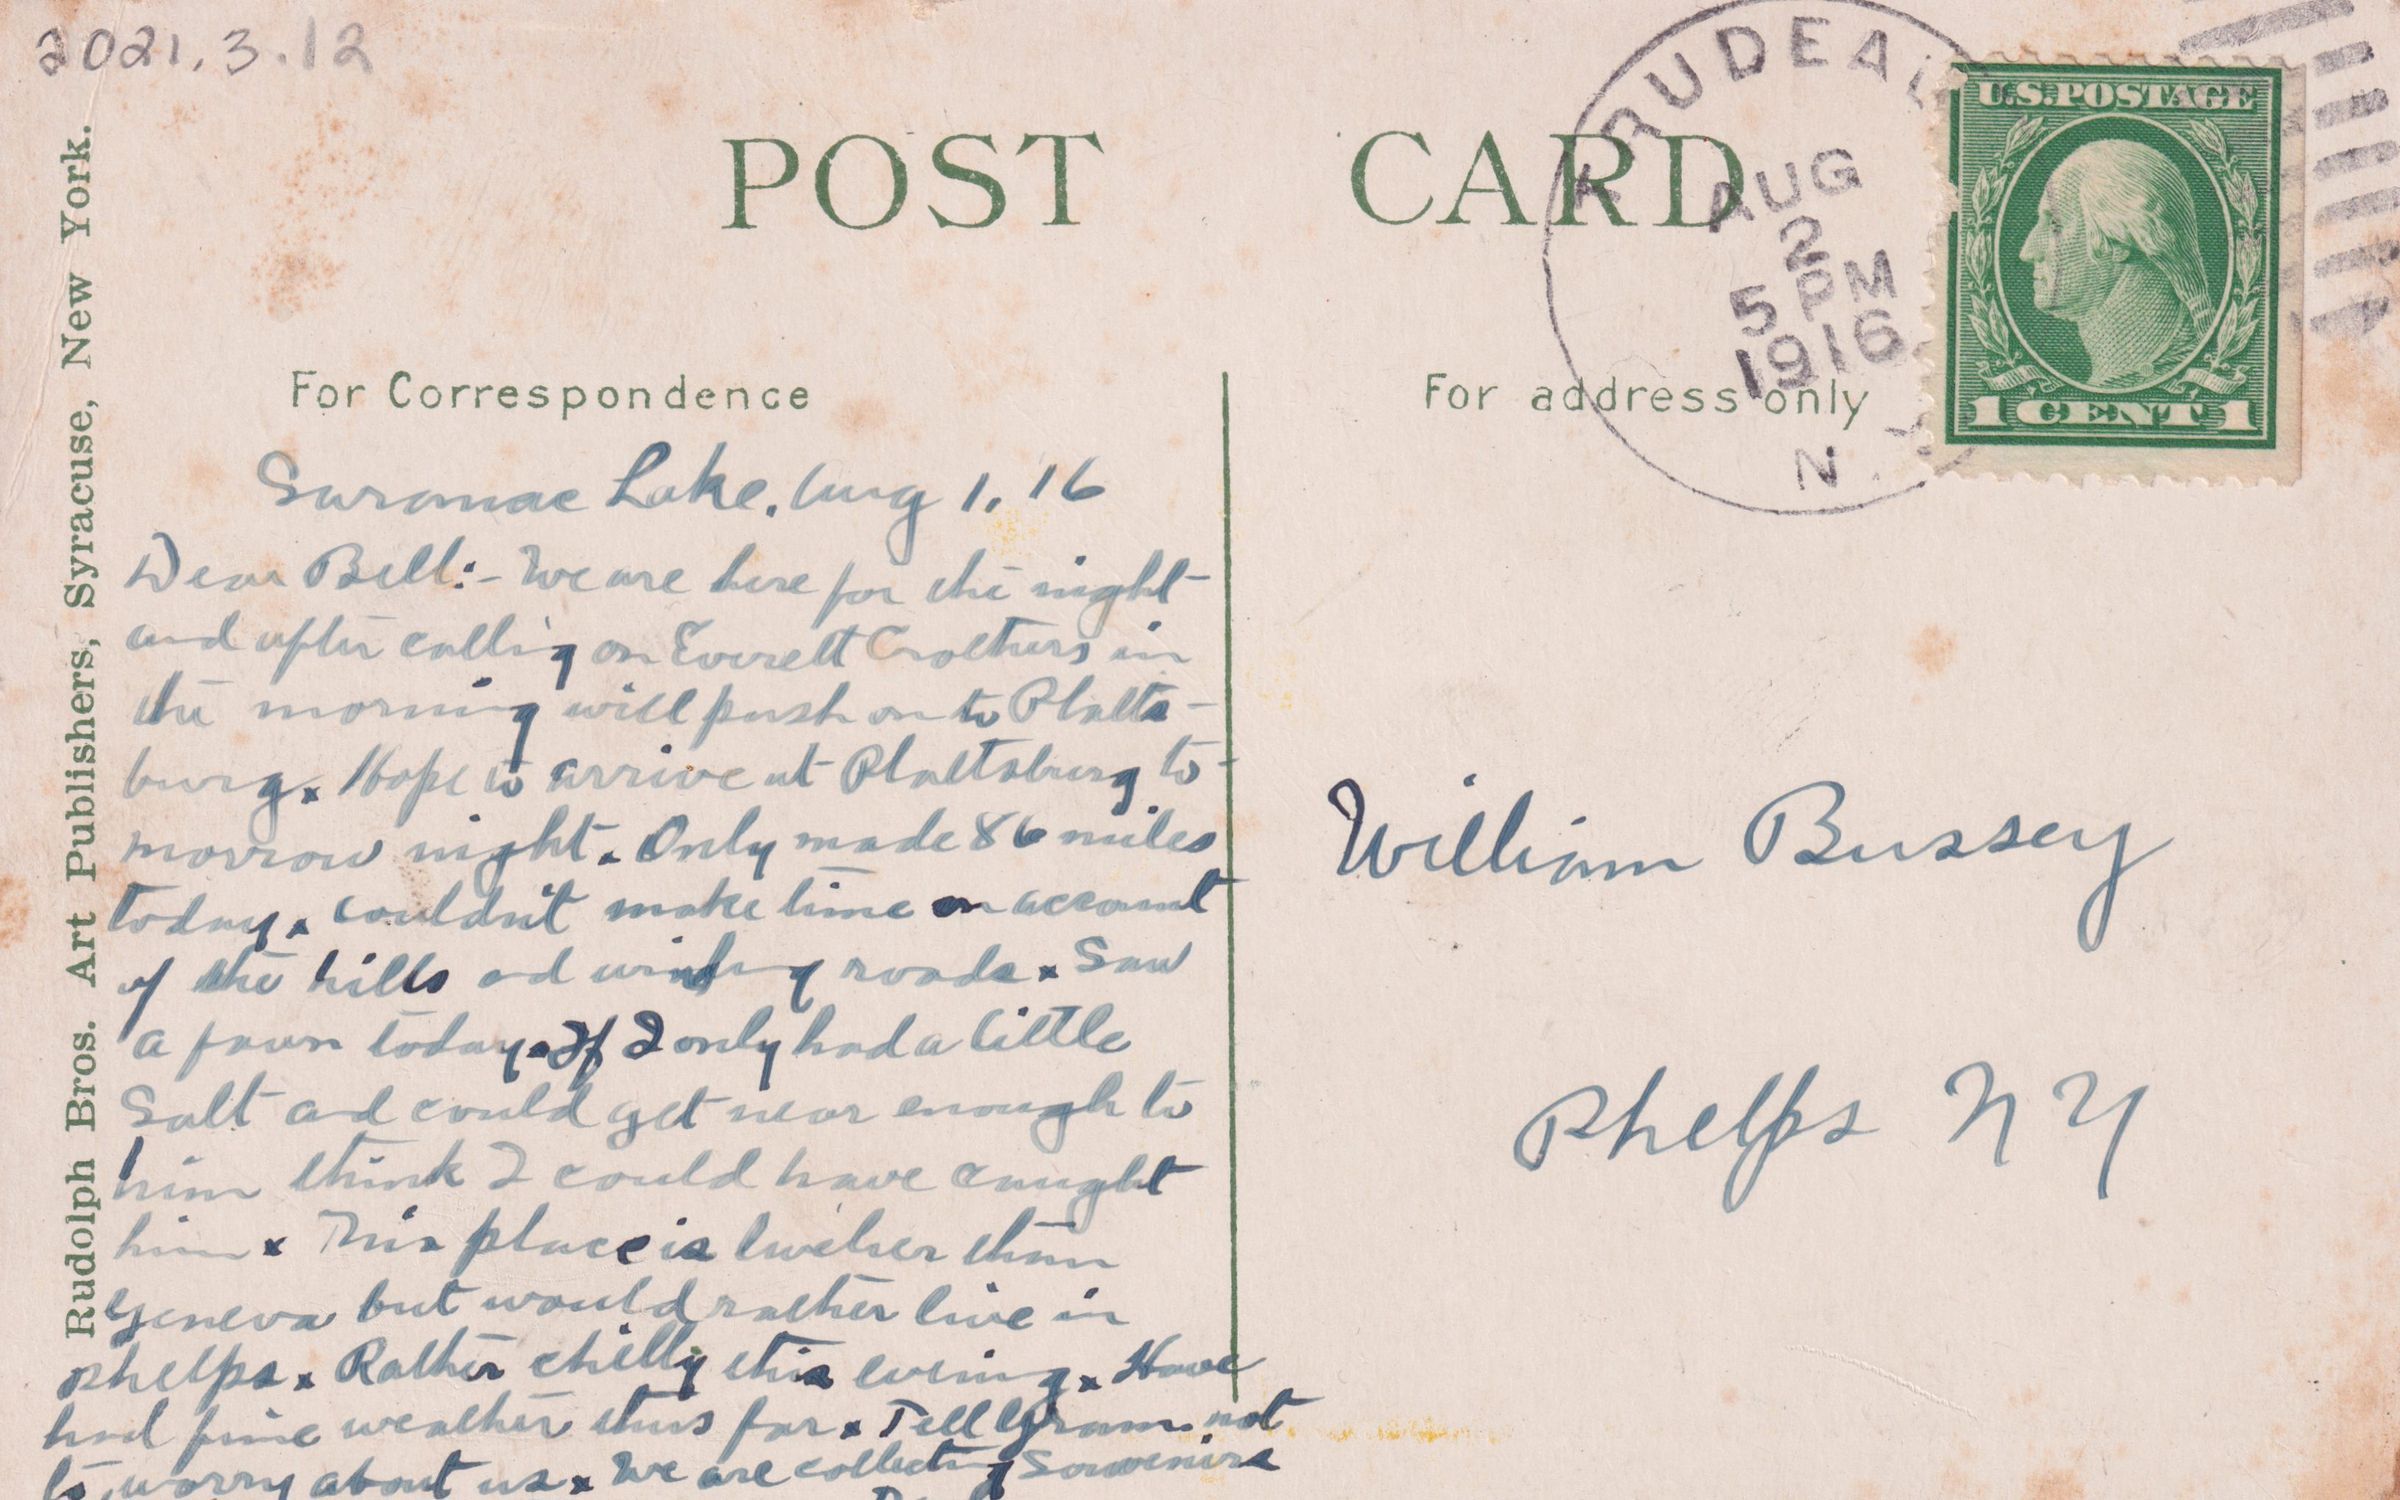 2021.3.12
POST CARD
TRUDEAU
AUG
2
5 PM
1916
N.Y.
U.S.POSTAGE
1 CENT 1
Rudolph Bros. Art Publishers, Syracuse, New York.
For Correspondence
For address only
Saranac Lake, Aug 1, 16
Dear Bill:- We are here for the night
and after calling on Everett Crothers in
the morning will push on to Platts-
burg. Hope to arrive at Plattsburg to-
morrow night. Only made 86 miles
today. Couldn't make time on account
of the hills and winding roads. Saw
a fawn today. If I only had a little
Salt and could get near enough to
him think I could have caught
him. This place is livelier than
Geneva but would rather live in
Phelps. Rather chilly this evening. Have
had fine weather thus far. Tell Gram not
to worry about us. We are collecting Souvenirs
William Bussey
Phelps N Y